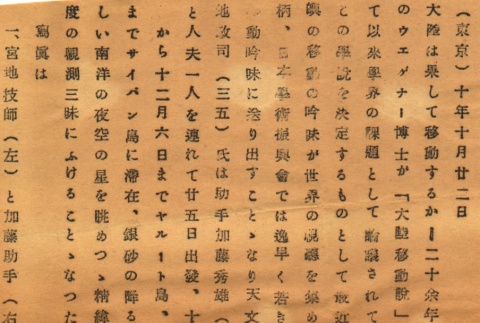 (東京)十年十月廿二日
大陸は果して移動するか―二十余年
のウエゲナー博士が「大陸移動說」
て以來學界の課題として論議されて
この學說を決定するものとして最近
の移動の吟味が世界の視聽を集め
柄、日本學術振興會では逸早く若き
動吟味に送り出すことゝなり天文
地政司(三五)氏は助手加藤秀雄(
と人夫一人を連れて廿五日出發、十
から十二月六日までヤルート島、
までサイパン島に滯在、銀砂の降る
しい南洋の夜空の星を眺めつゝ精緯
度の觀測三昧にふけることゝなつた
寫眞は
一、宮地技師(左)と加藤助手(右